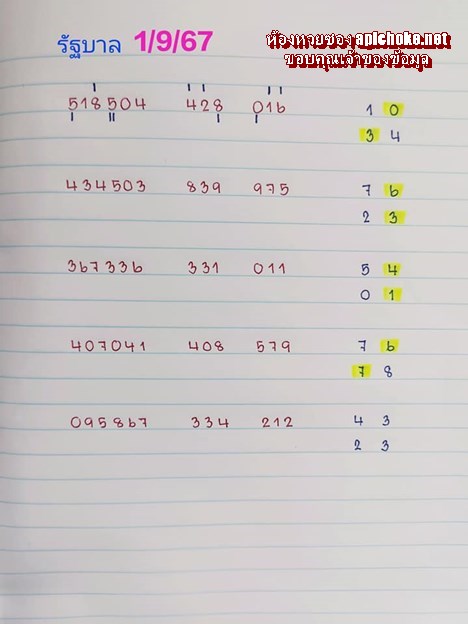 รัฐบาล 1/9/67
ห้องหวยซอง apichoke.net
ขอบคุณเจ้าของข้อมูล
518504 428 016 1 0
3 4
434503 839 975 7 6
2 3
367336 331 011 5 4
0 1
407041 408 579 7 6
7 8
095867 334 212 4 3
2 3